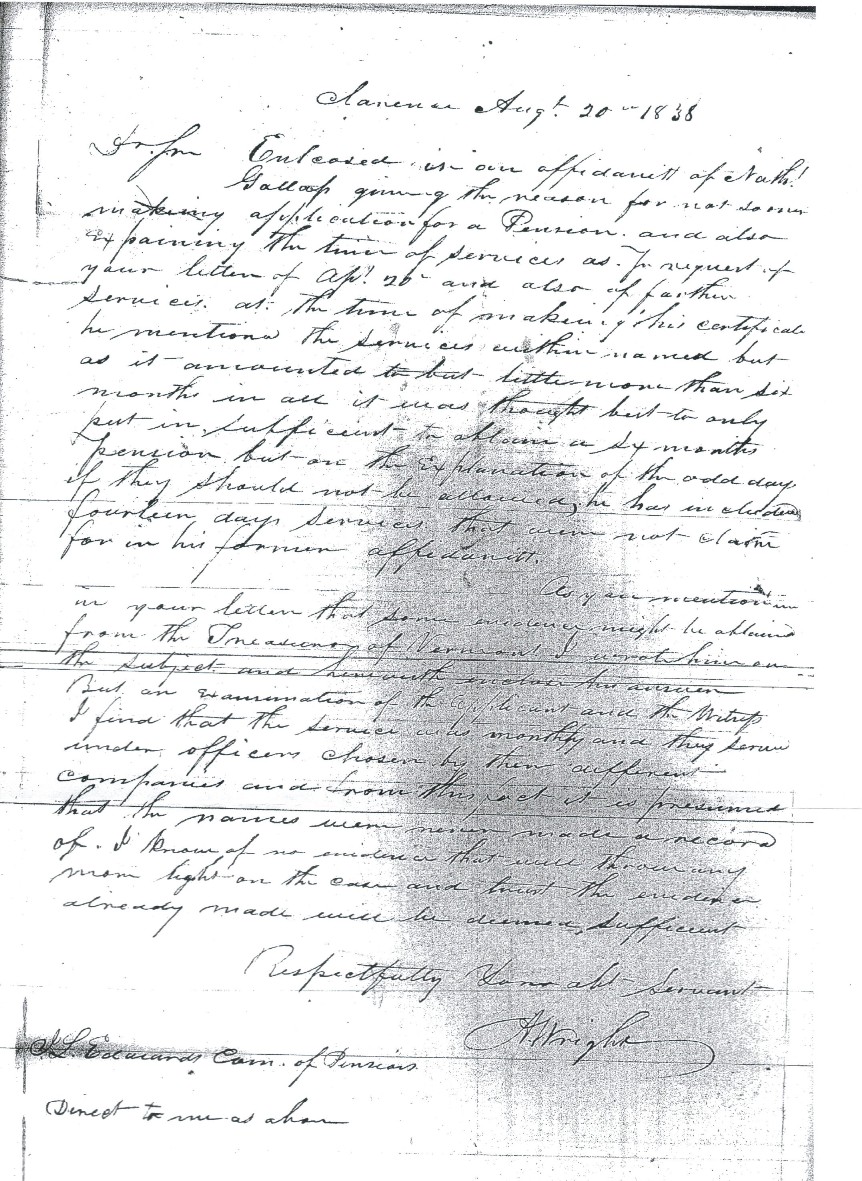 Clarence Augt. 20th 1838
Dr. Sir Enclosed is an affidavitt of Nathl.
Gallop giving the reason for not sooner
making application for a Pension. and also
Expaining the time of services as. pr request of
your letter of Apl. 20th and also of farther
services. at. the time of making his certificate
he mentiond the services within named but
as it amounted to but little more than six
months in all it was thought best to only
put in sufficient to obtain a six months
pension but on the Explanation of the odd days
if they should not be allowed, he has included
fourteen days services that were not claim
for in his former affidavitt.
As you mention in
in your letter that some evidence might be obtained
from the Treasurer of Vermont I wrote him on
the subject and herewith enclose his answer
But an examination of the applicant and the Witness
I find that the service was monthly and they serve
under officers chosen by their different
companies and from this fact it is presumed
that the names were never made a record
of. I know of no evidence that will throw any
more light on the case and trust the evidence
already made will be deemed sufficient
Respectfully Your obt Servant
A Wright
J L Edwards Com. of Pensions
Direct to me as above